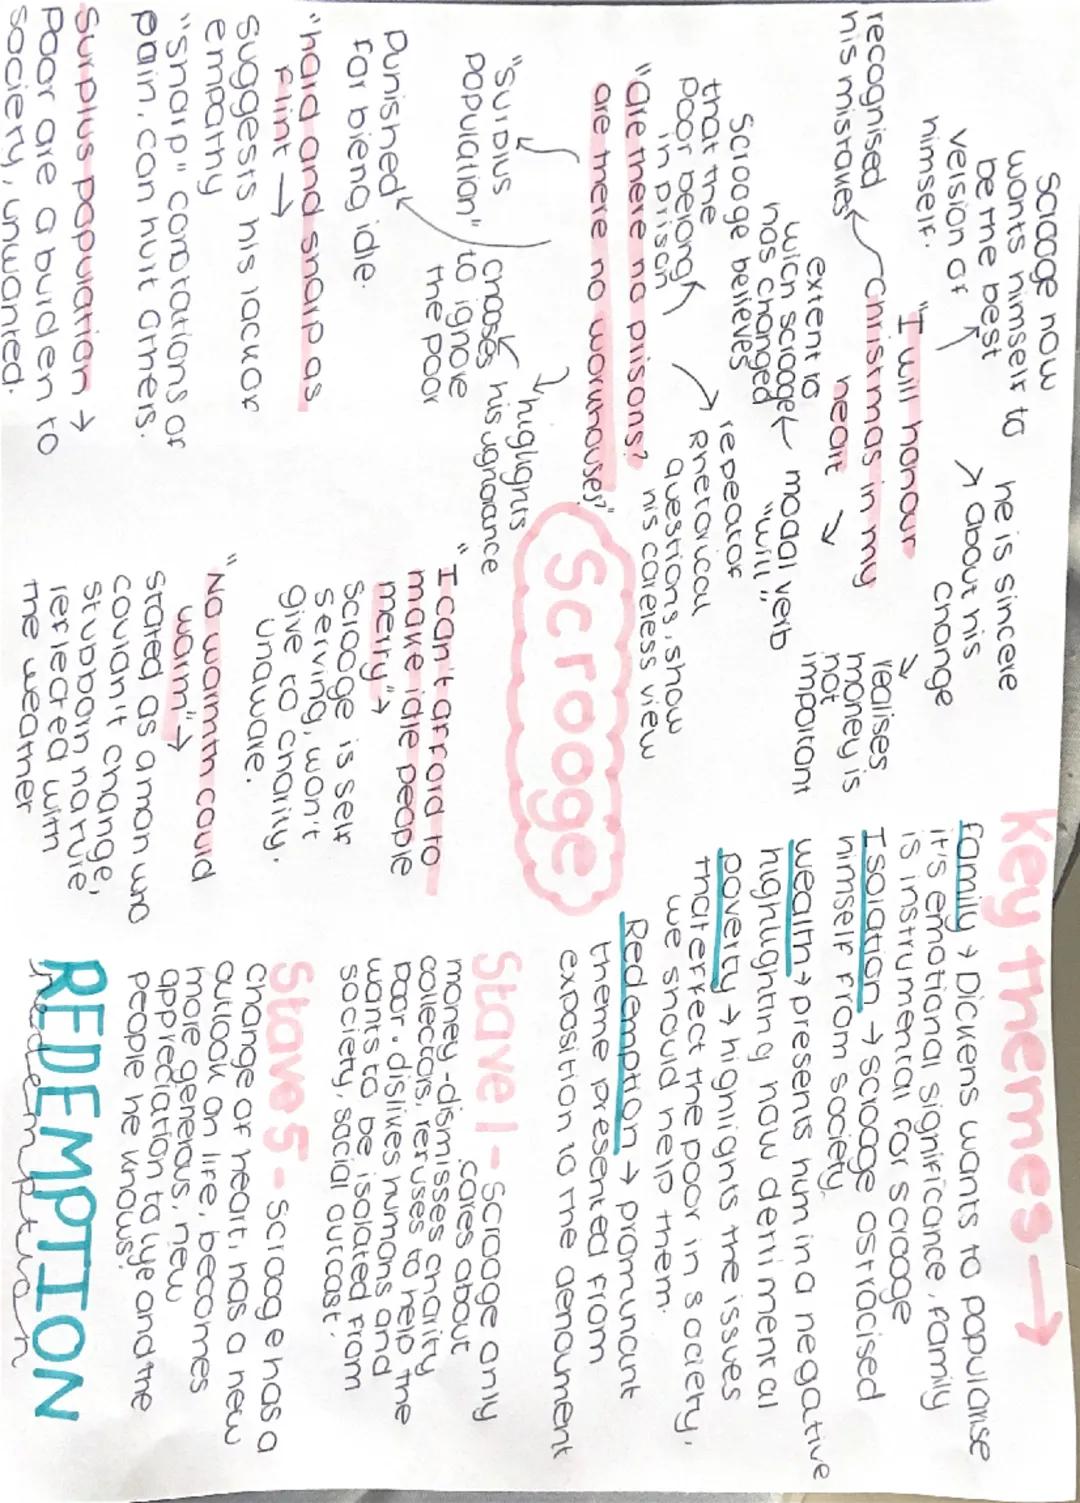 Scrooge now
wants himself to
be the best
version of
himself.
he is sincere
about his
change
"I will honour
Christmas in my
heart
recognised
his mistakes
realises
money is
not
important
extent to
wich scrooge
has changed
modal verb
"will"
Scrooge believes
that the
poor belong
in prison
repeator
Rhetorical
questions, show
his careless view
"are there no prisons?
are there no workhouses?"
"Surplus
population"
highlights
his ignorance
chooses
to ignore
the poor
Punished
for bieng idle.
Scrooge
"hard and sharp as
flint →
Suggests his lack of
empathy
"Sharp" conotations of
pain, can hurt others.
Surplus population →
Poor are a burden to
society, unwanted.
"I can't afford to
make idle people
merry" →
Scrooge is self
serving, won't
give to charity.
unaware.
"No warmth could
warm" →
Stated as a man who
couldn't change,
Stubborn narture
reflected with
the weather
Key themes →
family → Dickens wants to popularise
it's emotional significance, family
is instrumental for scrooge
Isolation → scrooge ostracised
himself from society.
wealth → presents hum in a negative
highlughting how detrimental
poverty → highlights the issues
that effect the poor in society,
we should help them.
Redemption → promunint
theme presented from
exposition to the denoument
Stave 1 - Scrooge only
cares about
money - dismisses charity
collectors, refuses to help the
poor. dislikes humans and
wants to be isolated from
society, social outcast.
Stave 5 - Scrooge has a
change of heart, has a new
outlook on life, becomes
more generous, new
appreciation to lye and the
people he knows.
REDEMPTION
redemption